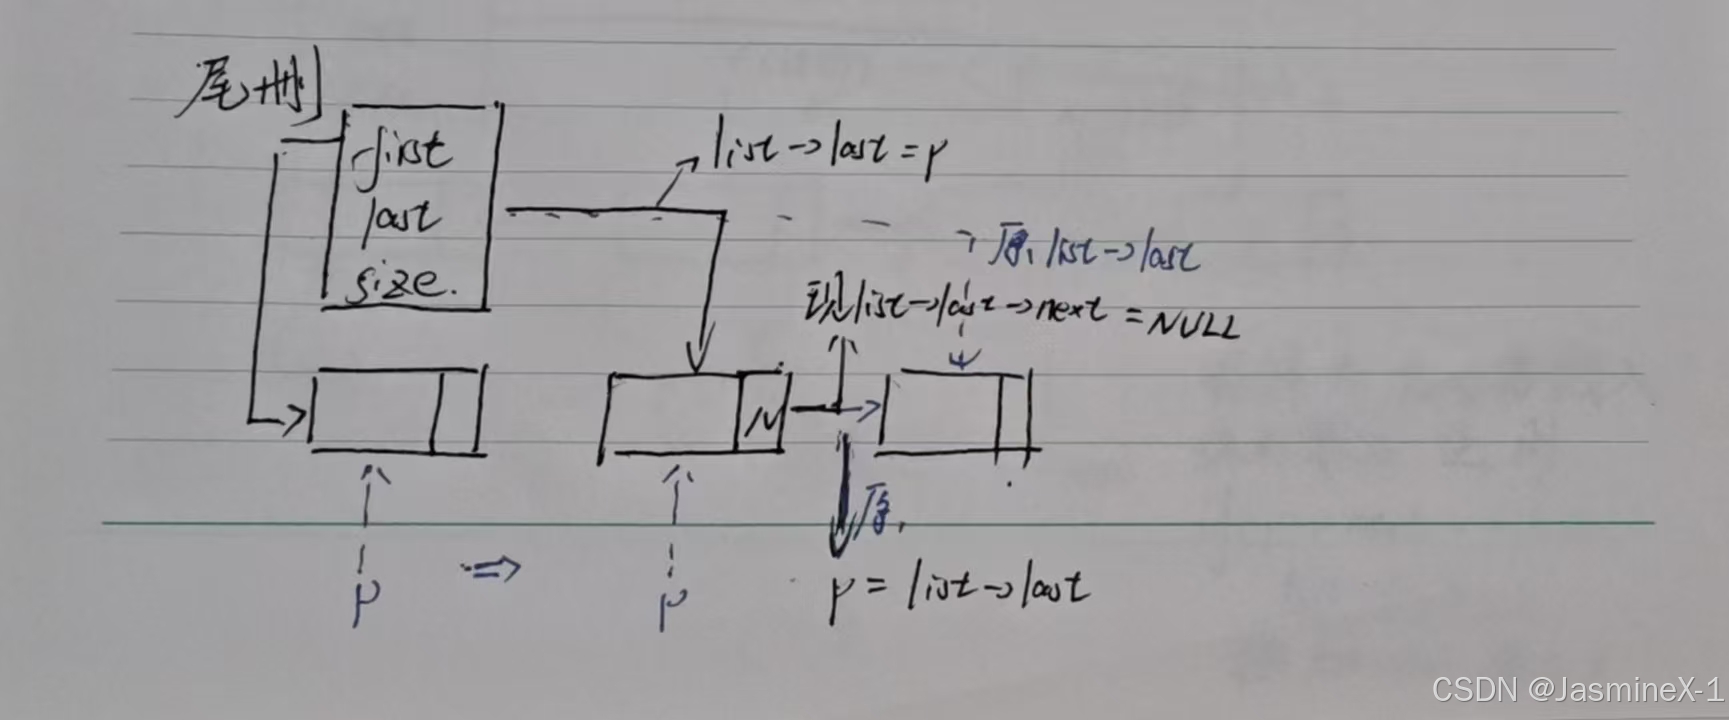 尾删
first
last
size.
list->last=p
原list->last
现list->last->next = NULL
N
原.
p
=>
p
p = list->last
CSDN @JasmineX-1